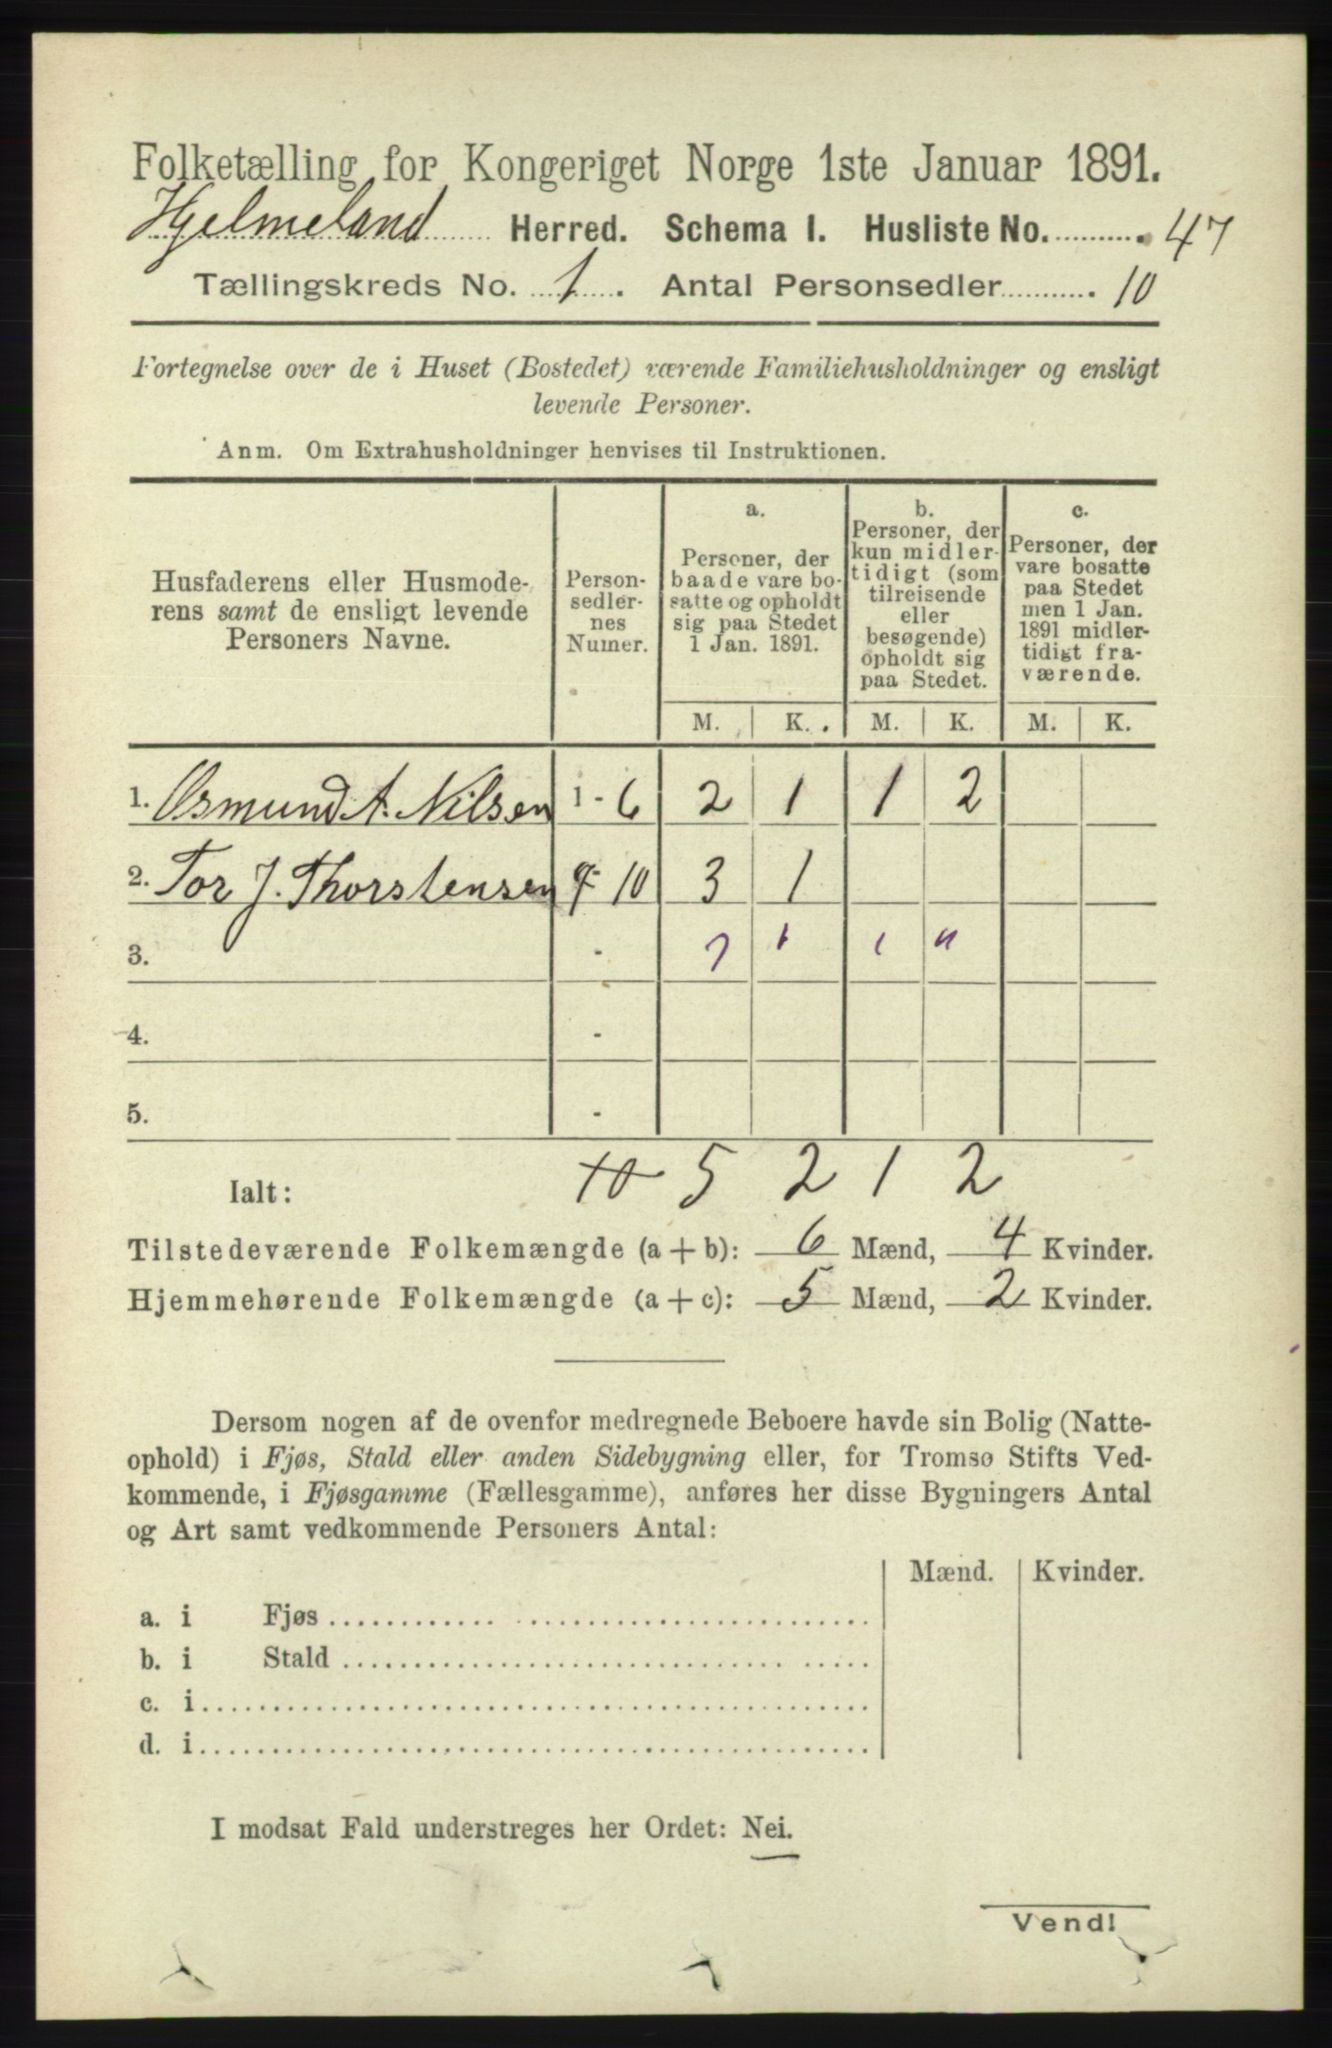 Folketælling for Kongeriget Norge 1ste Januar 1891.
Hjelmeland Herred. Schema I. Husliste No. 47
Tællingskreds No. 1. Antal Personsedler 10
Fortegnelse over de i Huset (Bostedet) værende Familiehusholdninger og ensligt
levende Personer.
Anm. Om Extrahusholdninger henvises til Instruktionen.
Husfaderens eller Husmode-
rens samt de ensligt levende
Personers Navne.
Person-
sedler-
nes
Numer.
a.
Personer, der
baade vare bo-
satte og opholdt
sig paa Stedet
1 Jan. 1891.
b.
Personer, der
kun midler-
tidigt (som
tilreisende
eller
besøgende)
opholdt sig
paa Stedet.
c.
Personer, der
vare bosatte
paa Stedet
men 1 Jan.
1891 midler-
tidigt fra-
værende.
M. K. M. K. M. K.
1. Osmund A. Nilsen 1 - 6 2 1 1 2
2. Tor J. Thorstensen 7 - 10 3 1
3. -
4. -
5. -
Ialt: 10 5 2 1 2
Tilstedeværende Folkemængde (a + b): 6 Mænd, 4 Kvinder.
Hjemmehørende Folkemængde (a + c): 5 Mænd, 2 Kvinder.
Dersom nogen af de ovenfor medregnede Beboere havde sin Bolig (Natte-
ophold) i Fjøs, Stald eller anden Sidebygning eller, for Tromsø Stifts Ved-
kommende, i Fjøsgamme (Fællesgamme), anføres her disse Bygningers Antal
og Art samt vedkommende Personers Antal:
Mænd. Kvinder.
a. i Fjøs
b. i Stald
c. i
d. i
I modsat Fald understreges her Ordet: Nei.
Vend!